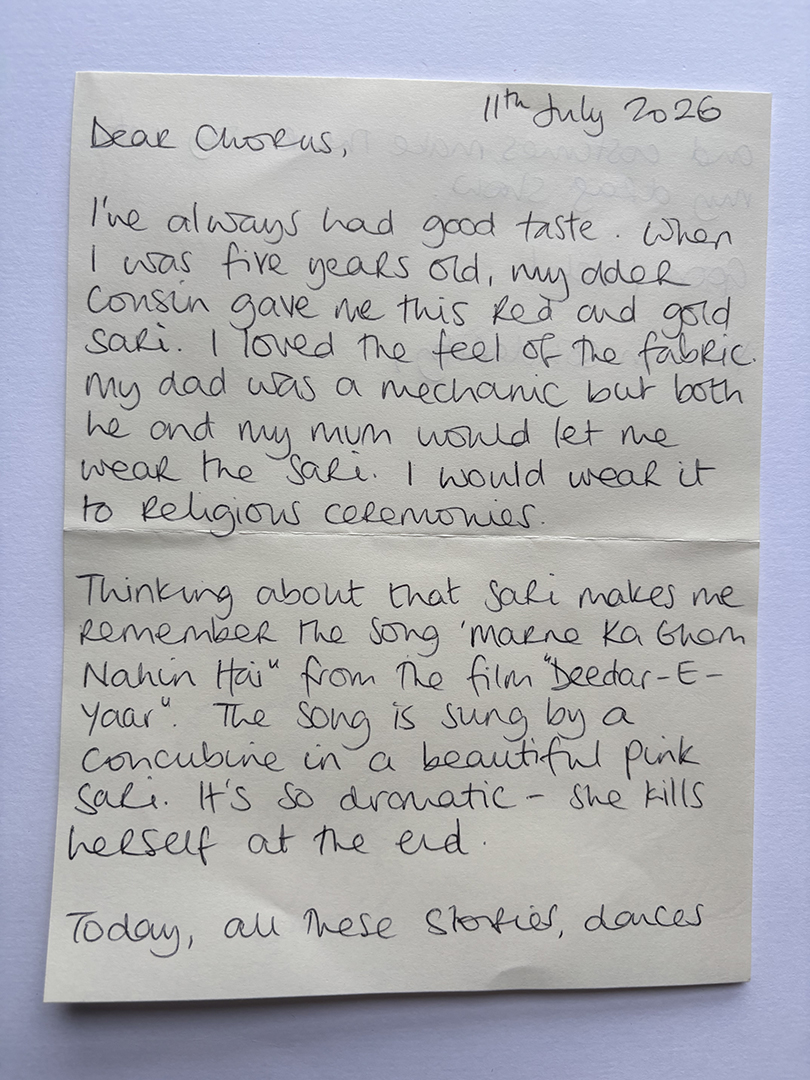 11th July 2026
Dear Chorus,
I've always had good taste. When
I was five years old, my older
cousin gave me this red and gold
sari. I loved the feel of the fabric.
My dad was a mechanic but both
he and my mum would let me
wear the sari. I would wear it
to religious ceremonies.
Thinking about that sari makes me
remember the song 'Marne Ka Gham
Nahin Hai" from the film "Deedar-E-
Yaar". The song is sung by a
concubine in a beautiful pink
sari. It's so dramatic - she kills
herself at the end.
Today, all these stories, dances